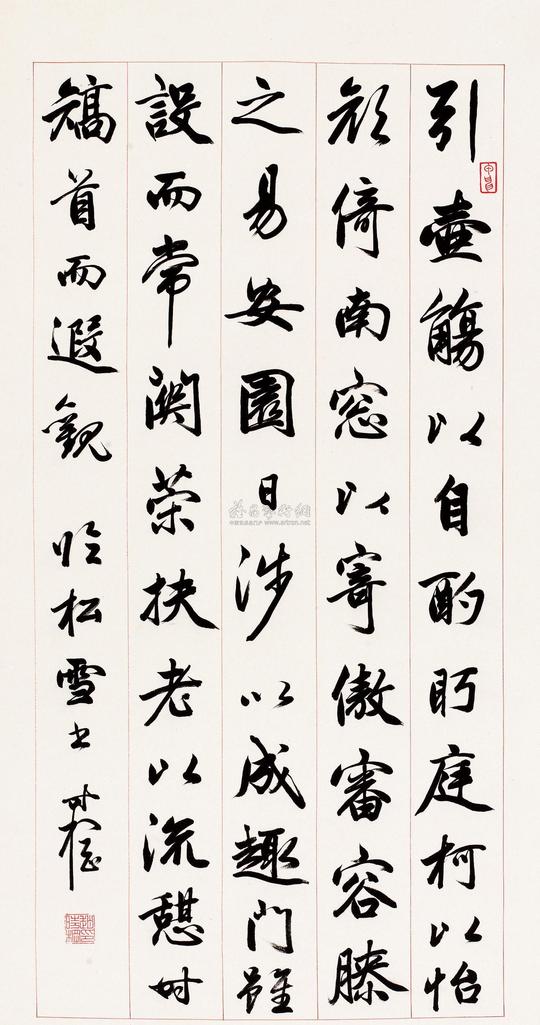 引壺觴以自酌眄庭柯以怡
顔倚南窓以寄傲審容膝
之易安園日涉以成趣門雖
設而常関策扶老以流憩时
矯首而遐觀 临松雪书
www.artron.net